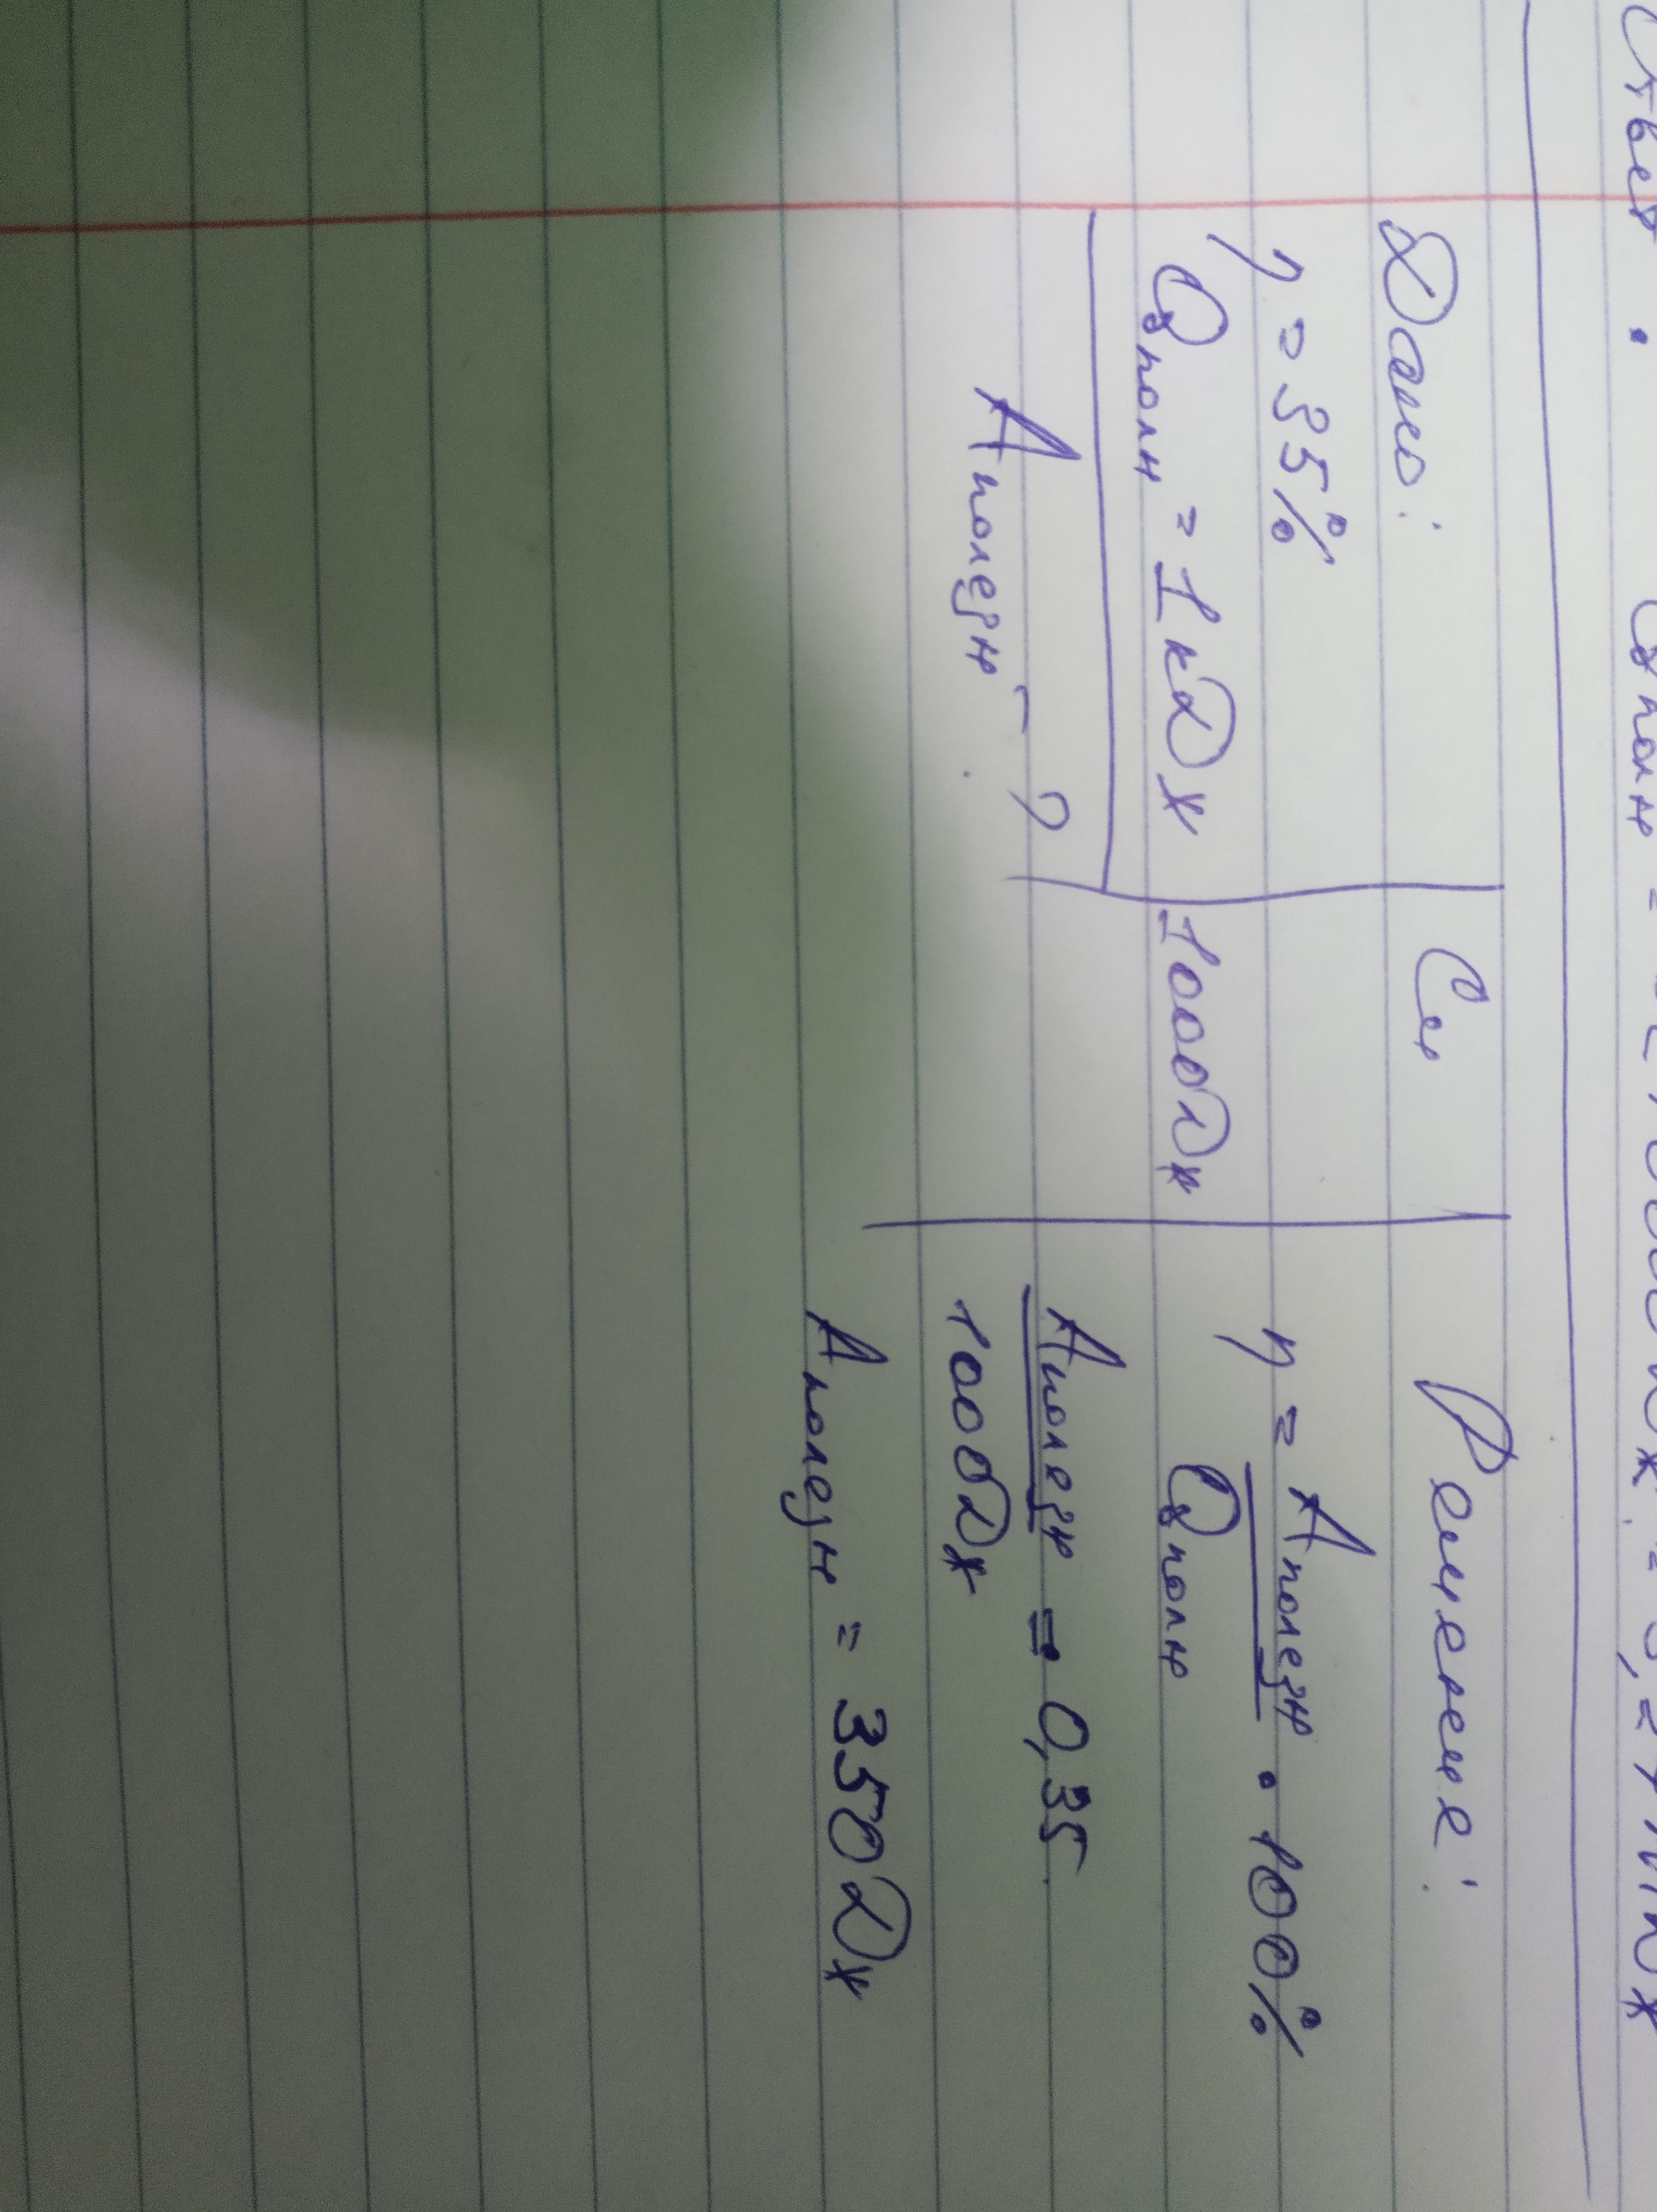 Ответ :
Дано:
η = 35%
Qполн = 1кДж
Aполезн - ?
Си
1000Дж
Решение:
η = Aполезн / Qполн · 100%
Aполезн / 1000Дж = 0,35
Aполезн = 350Дж